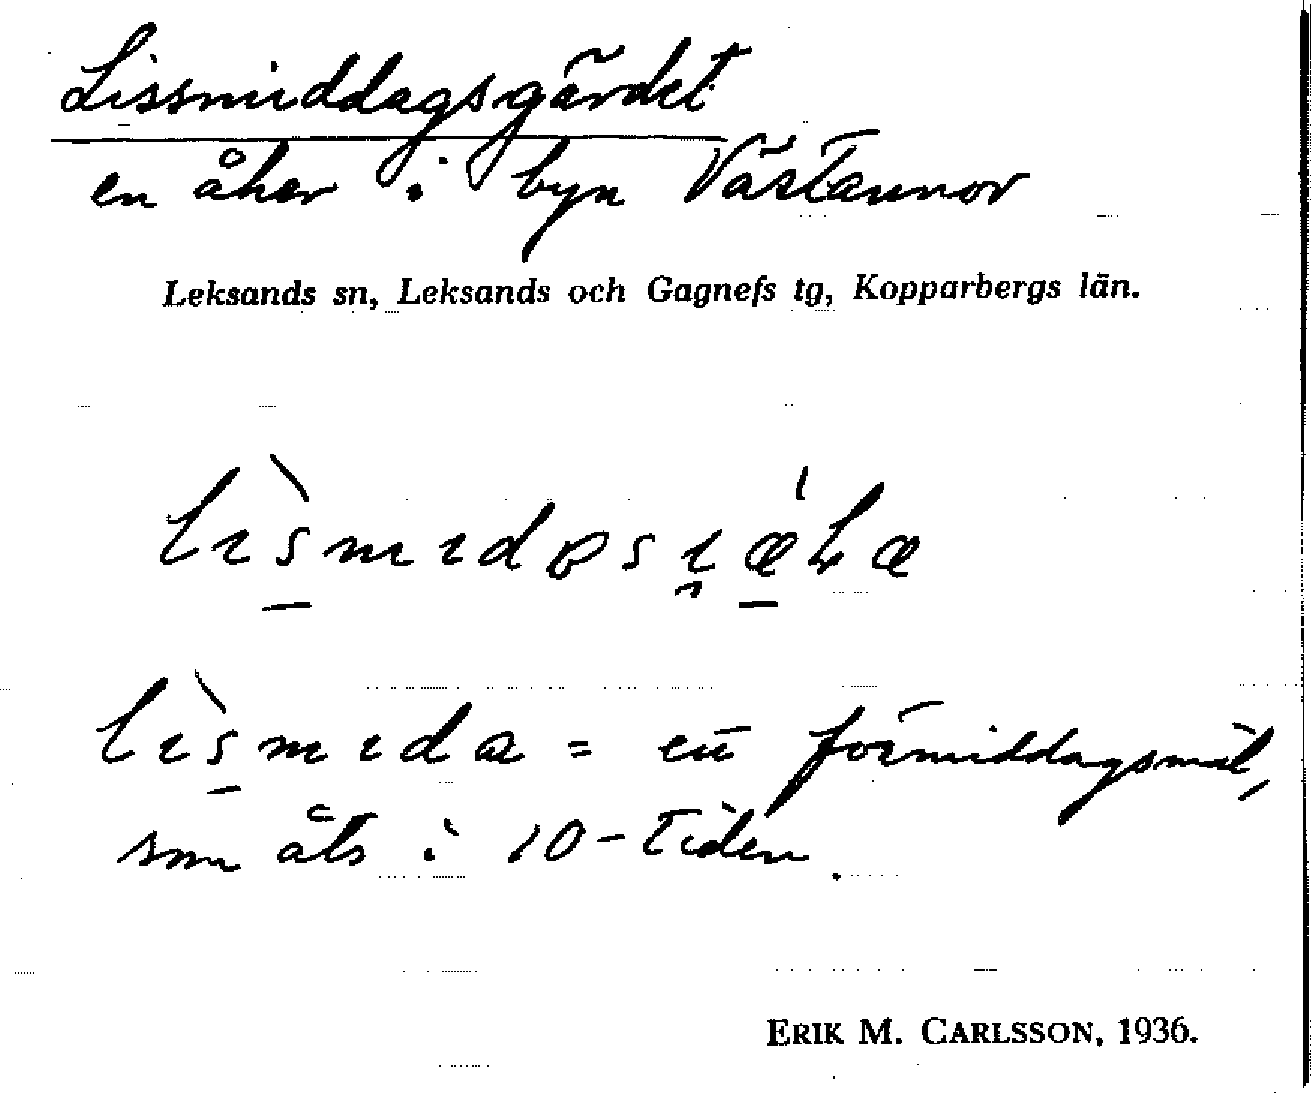 Lissmiddagsgärdet
en åker i byn Västannor
Leksands sn, Leksands och Gagnefs tg, Kopparbergs län.
= ett förmiddagsmål,
som åts i 10-tiden.
ERIK M. CARLSSON, 1936.